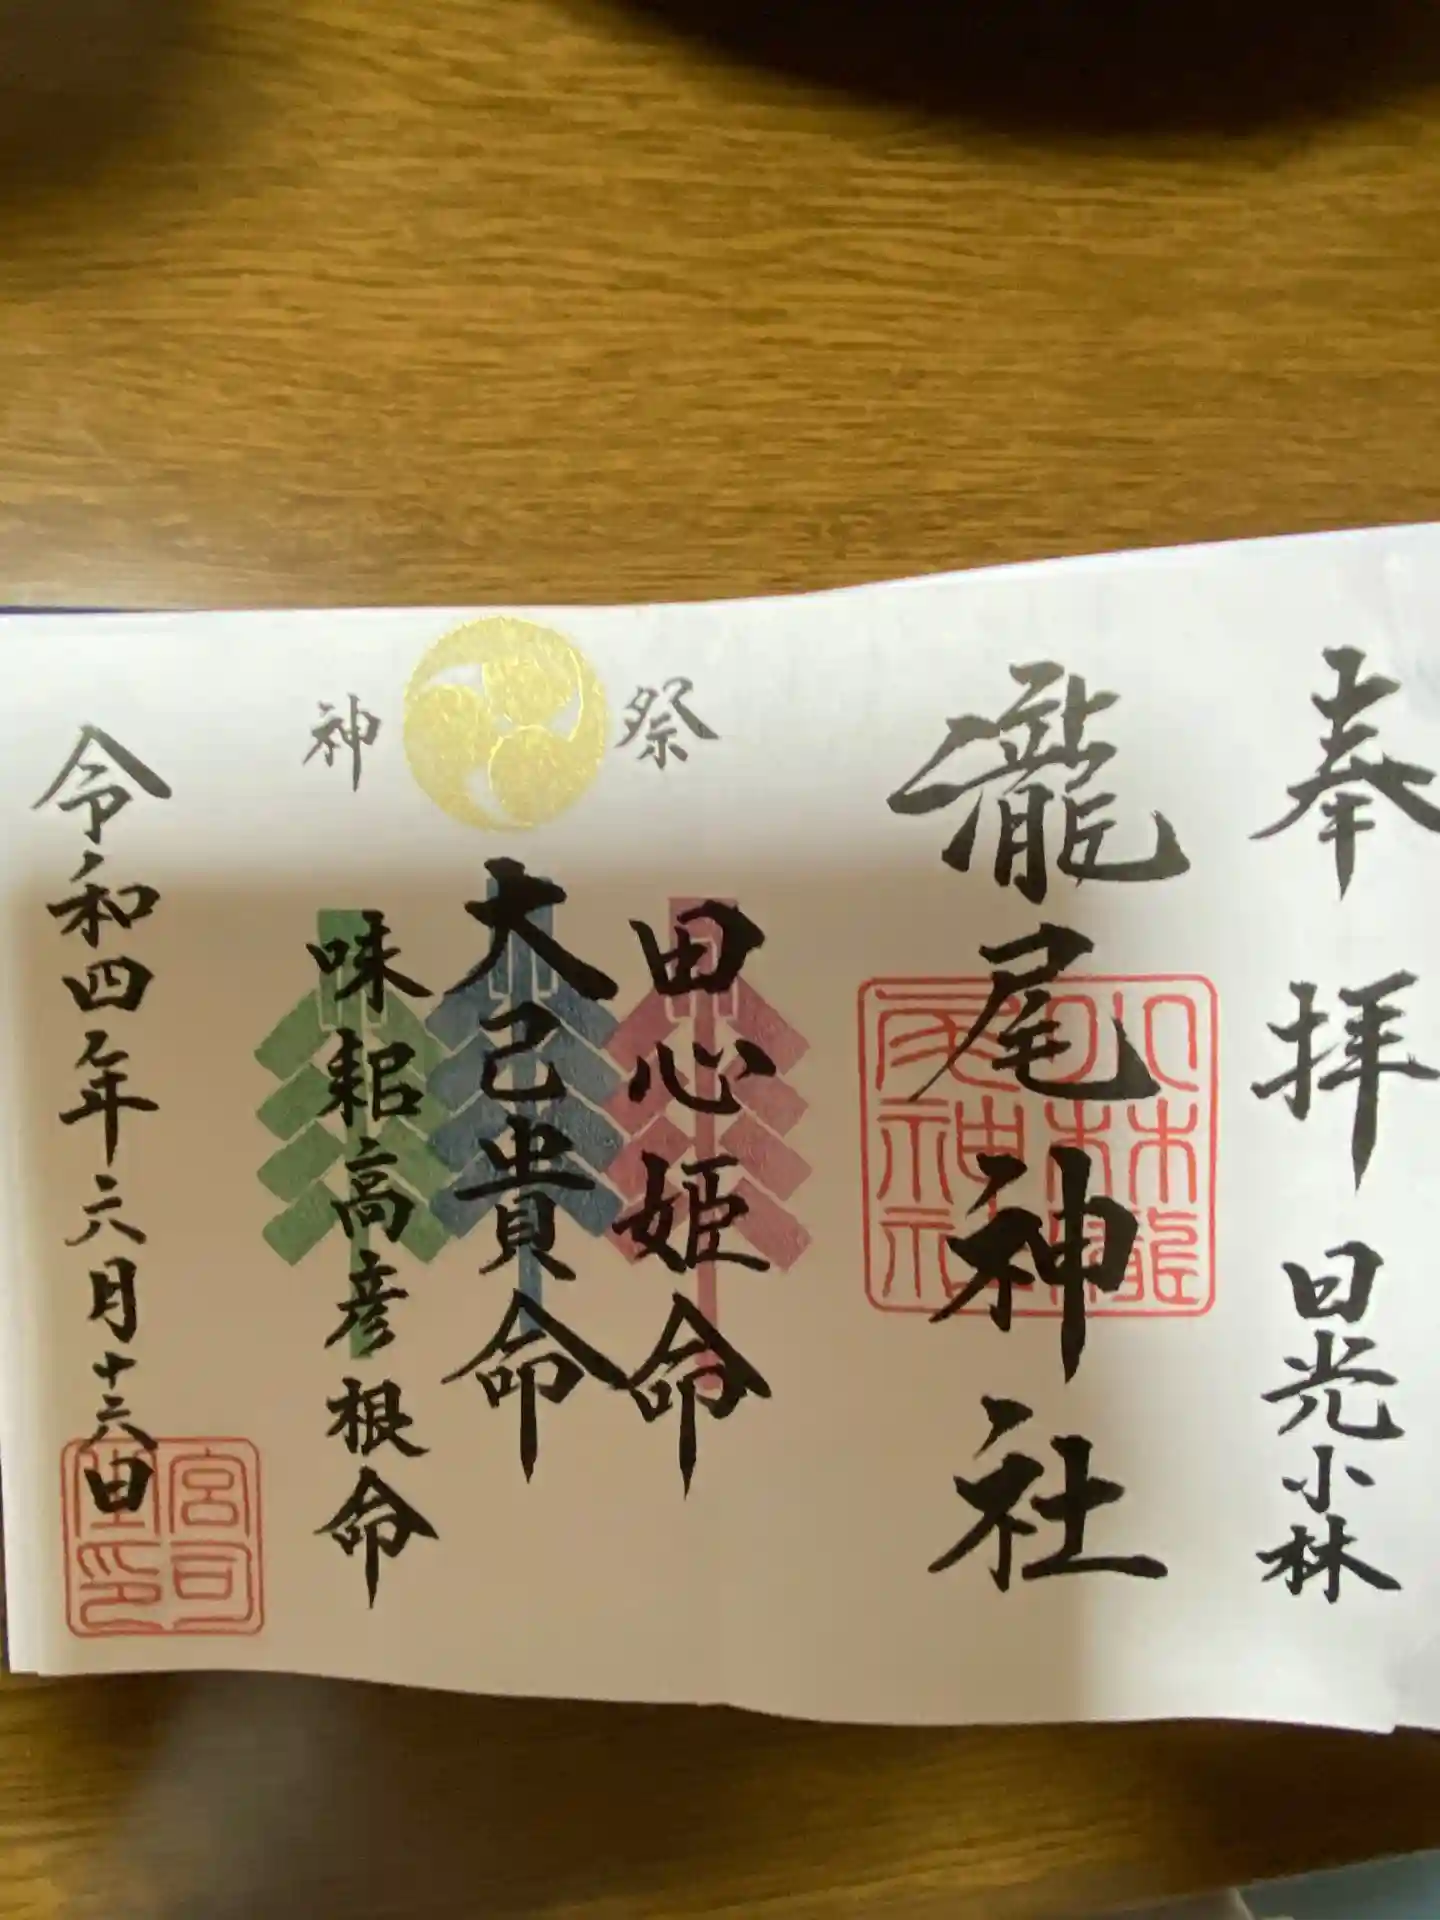 奉拝 日光小林
瀧尾神社
小林瀧尾神社
祭神
田心姫命
大己貴命
味耜高彦根命
令和四年六月十六日
宮司之印